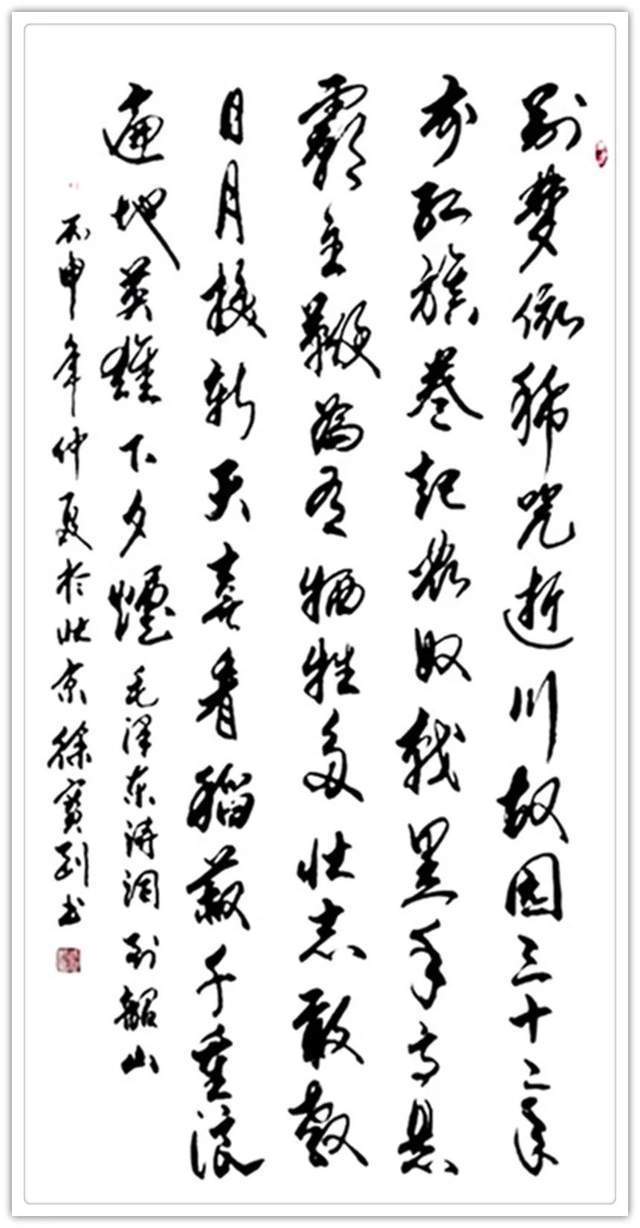 别夢依稀咒逝川故園三十二年
前红旗卷起农奴戟黑手高悬
霸主鞭為有牺牲多壮志敢教
日月换新天喜看稻菽千重浪
遍地英雄下夕煙 毛泽东诗词到韶山
丙申年仲夏於北京徐寶书